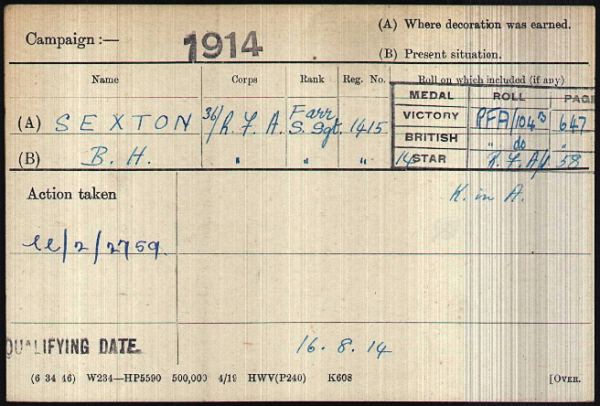 (A) Where decoration was earned.
Campaign :— 1914
(B) Present situation.
Name Corps Rank Reg. No. Roll on which included (if any)
MEDAL ROLL PAGE
(A) SEXTON 36/R.F.A. Farr S. Sgt. 1415 VICTORY RFA/104B 647
BRITISH " do "
(B) B. H. " " " 14 STAR R.F.A/1 58
Action taken K. in A.
/2/2759.
QUALIFYING DATE. 16.8.14
(6 34 46) W234—HP5590 500,000 4/19 HWV(P240) K608 [OVER.